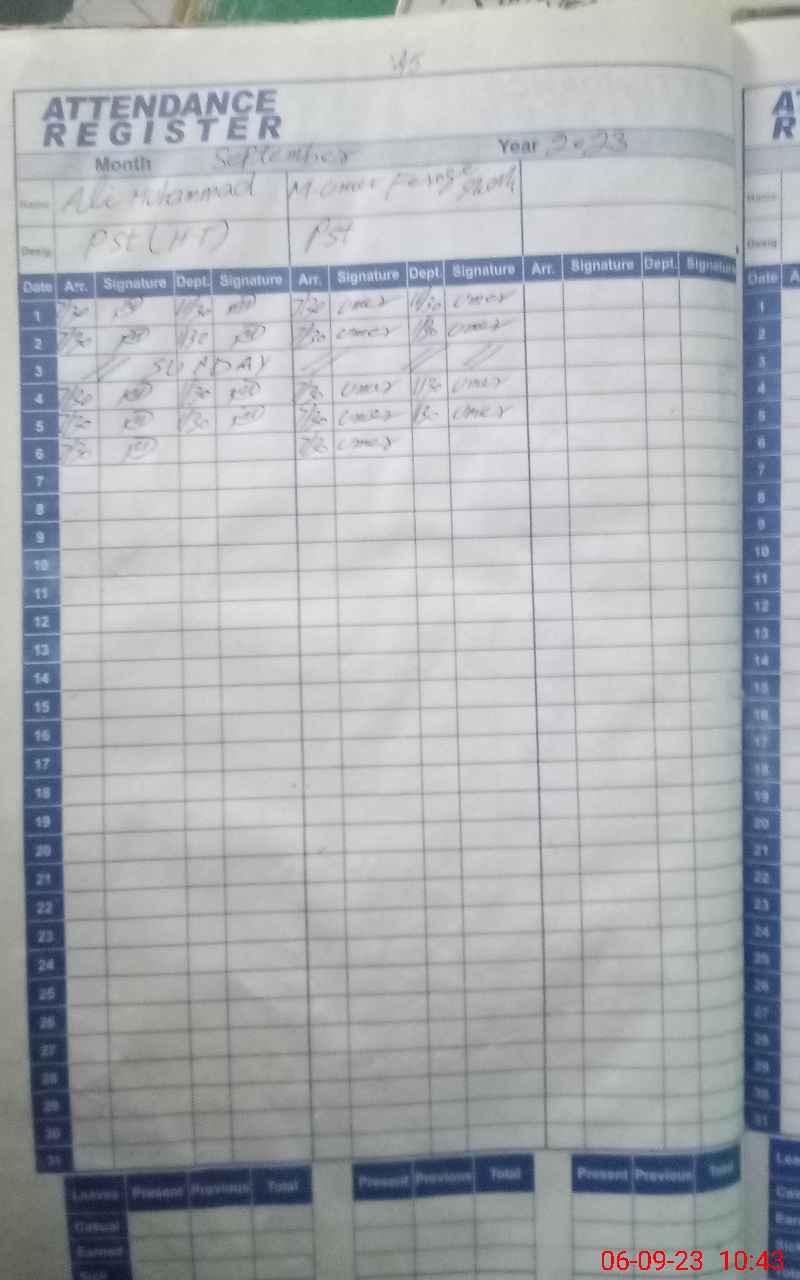 45
ATTENDANCE
REGISTER
Month September Year 2023
Name Ali Muhammad M. Umer
Desig PSt (H-T) PSt
Date Arr. Signature Dept. Signature Arr. Signature Dept. Signature Arr. Signature Dept. Signature
1 7/30 7/30 umer umer
2 7/30 1/30 7/30 umer 1/30 umer
3 // SUNDAY // // //
4 7/30 1/30 7/30 umer 1/30 umer
5 7/30 1/30 7/30 umer 1/30 umer
6 7/30 7/30 umer
7
8
9
10
11
12
13
14
15
16
17
18
19
20
21
22
23
24
25
26
27
28
29
30
31
Leaves Present Previous Total Present Previous Total Present Previous Total
Casual
Earned
Sick
Name
Desig
Date
1
2
3
4
5
6
7
8
9
10
11
12
13
14
15
16
17
18
19
20
21
22
23
24
25
26
27
28
29
30
31
06-09-23 10:43